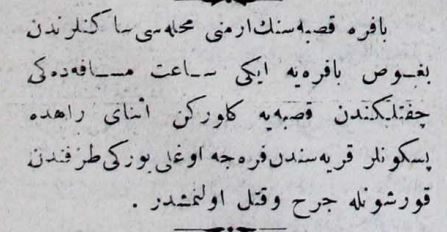 بافره قصبه‌سنك ارمنی محله‌سی ساكنلرندن
بغوص بافره‌یه ایكی ساعت مسافه‌ده‌كی
چفتلكندن قصبه‌یه كلوركن اثنای راهده
پسكونلر قریه‌سندن قره‌جه اوغلی یوركی طرفندن
قورشونله جرح وقتل اولنمشدر .